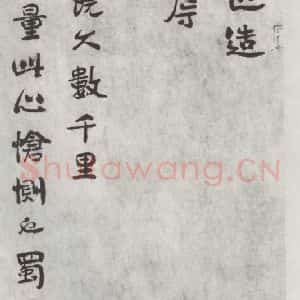 造
數千里
量此心愴惻也蜀
Shufawang.CN